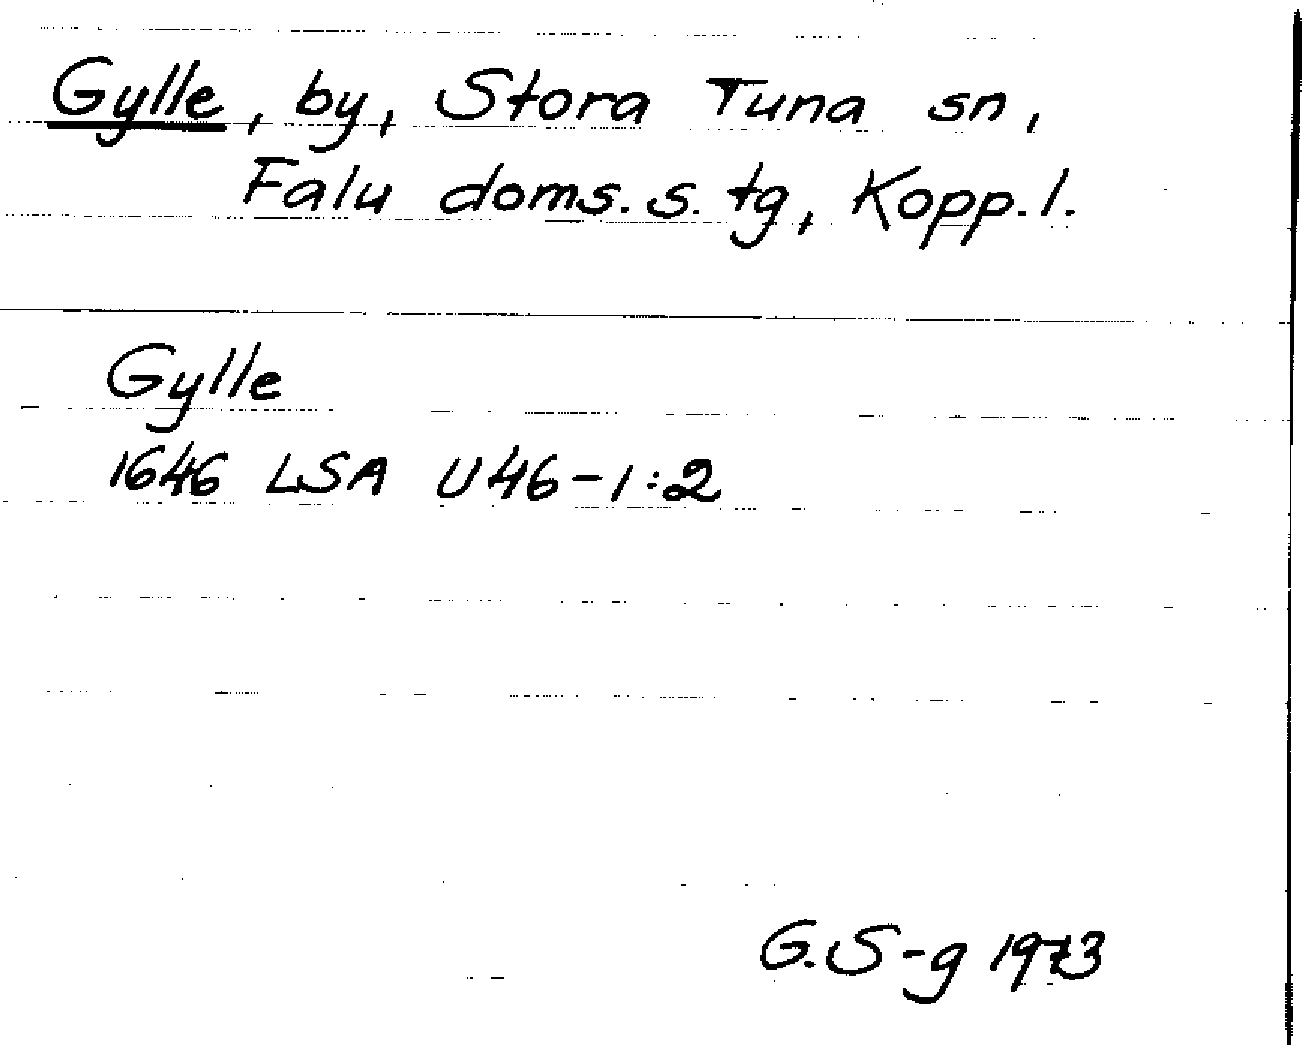 Gylle, by, Stora Tuna sn,
Falu doms. s. tg, Kopp. l.
Gylle
1646 LSA U46-1:2
G. S-g 1973